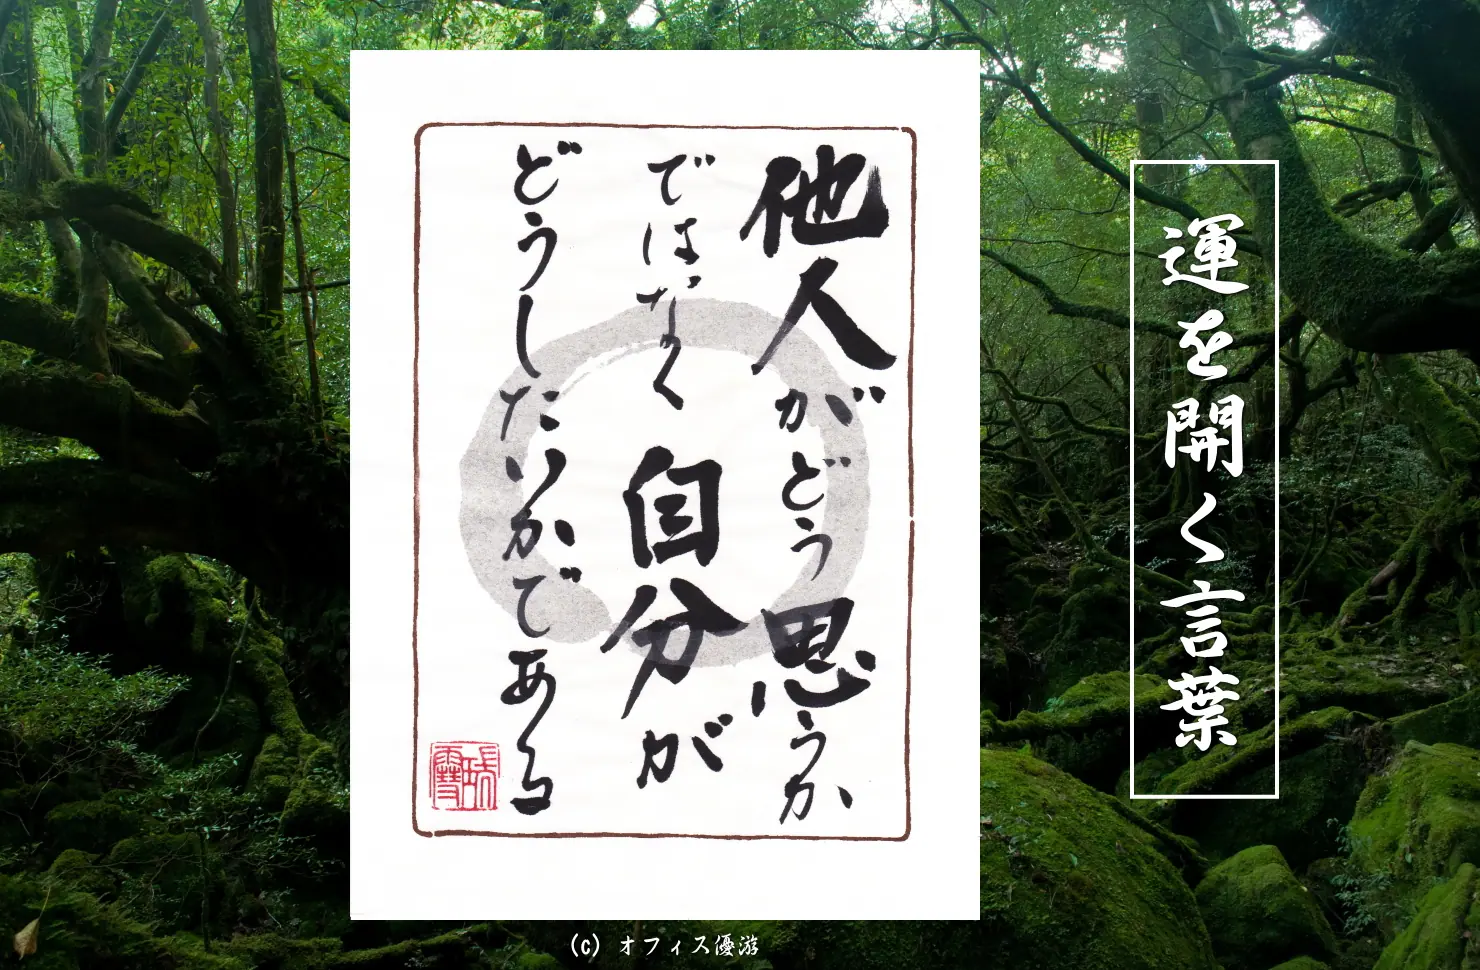 運を開く言葉
他人がどう思うか
ではなく自分が
どうしたいかである
(c) オフィス優游